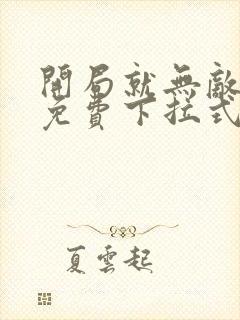 開局就無敵
免費下拉式
夏雲起